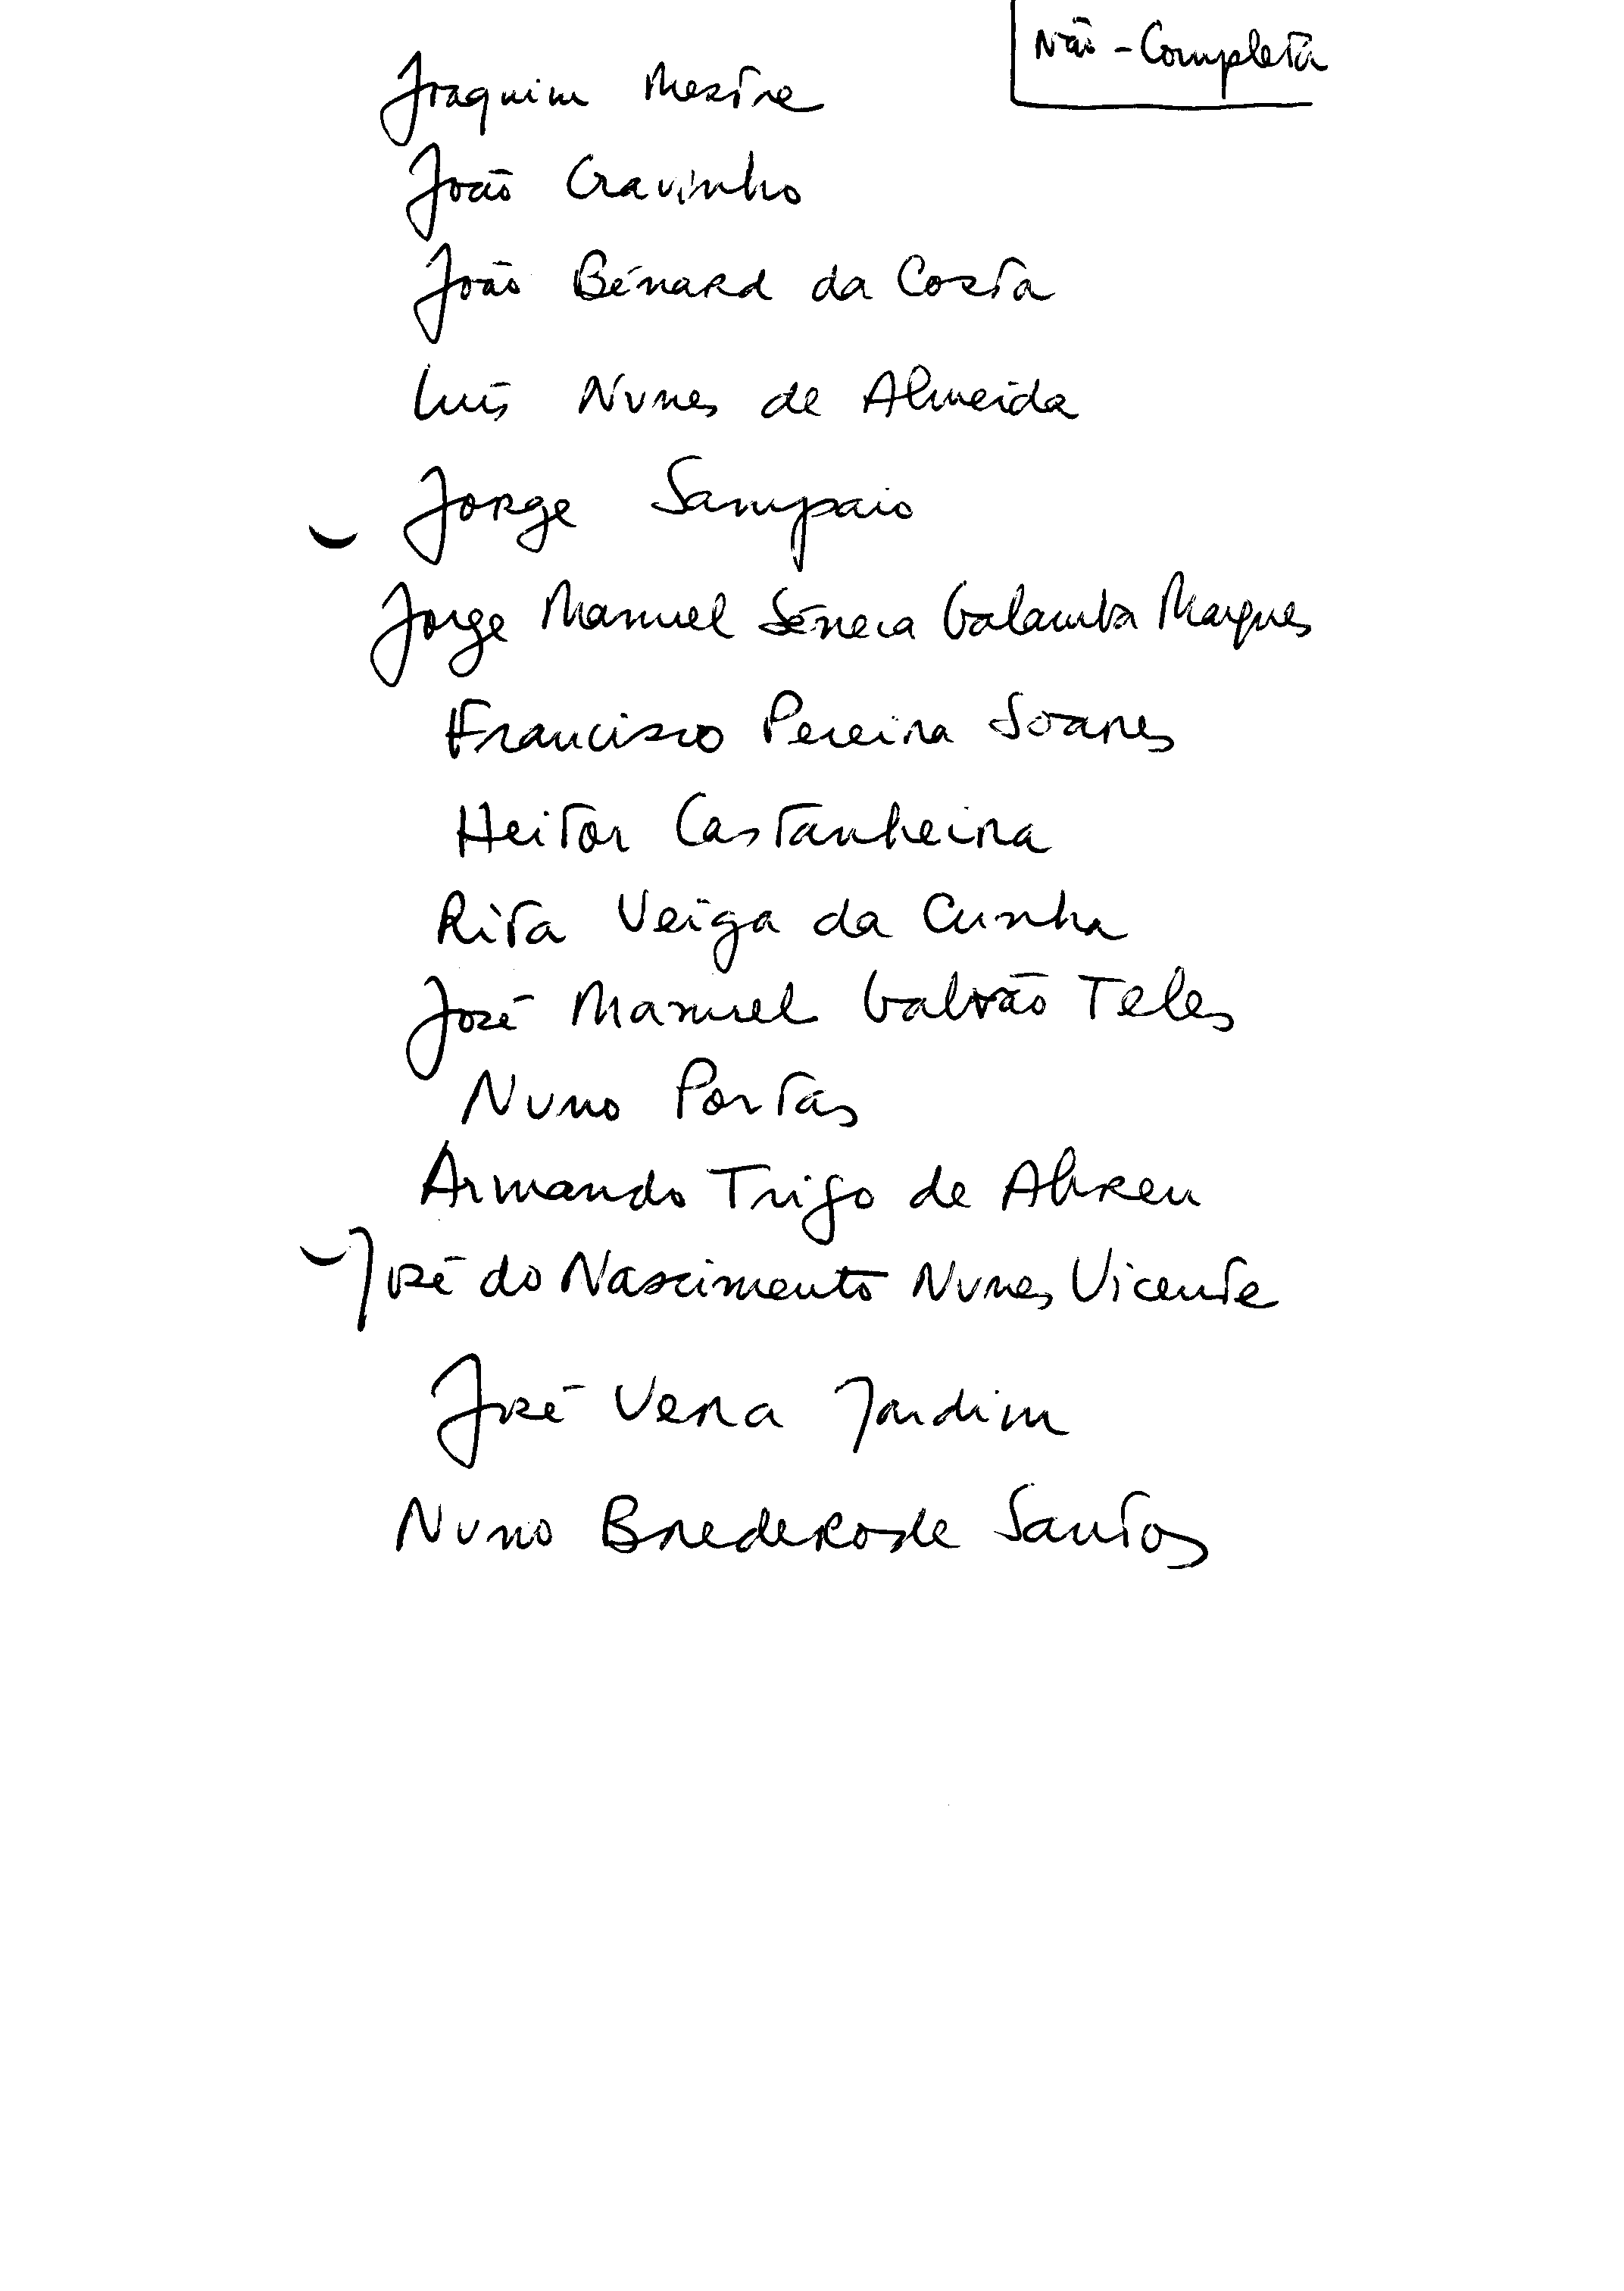 Não - Completa
Joaquim Mestre
João Cravinho
João Bénard da Costa
Luís Nunes de Almeida
Jorge Sampaio
Jorge Manuel Séneca Galamba Marques
Francisco Pereira Soares
Heitor Castanheira
Rita Veiga da Cunha
José Manuel Galvão Teles
Nuno Portas
Armando Trigo de Abreu
José do Nascimento Nunes Vicente
José Vera Jardim
Nuno Brederode Santos